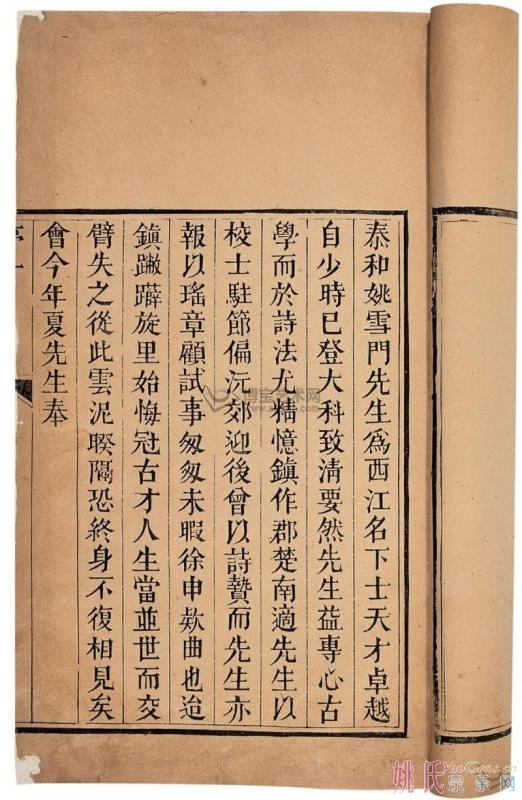 泰和姚雪門先生爲西江名下士天才卓越
自少時已登大科致清要然先生益專心古
學而於詩法尤精憶鎮作郡楚南適先生以
校士駐節偏沅郊迎後曾以詩贄而先生亦
報以瑤章顧試事匆匆未暇徐申欵曲也迨
鎮蹴躃旋里始悔冠古才人生當並世而交
臂失之從此雲泥暌隔恐終身不復相見矣
會今年夏先生奉
姚氏宗亲网